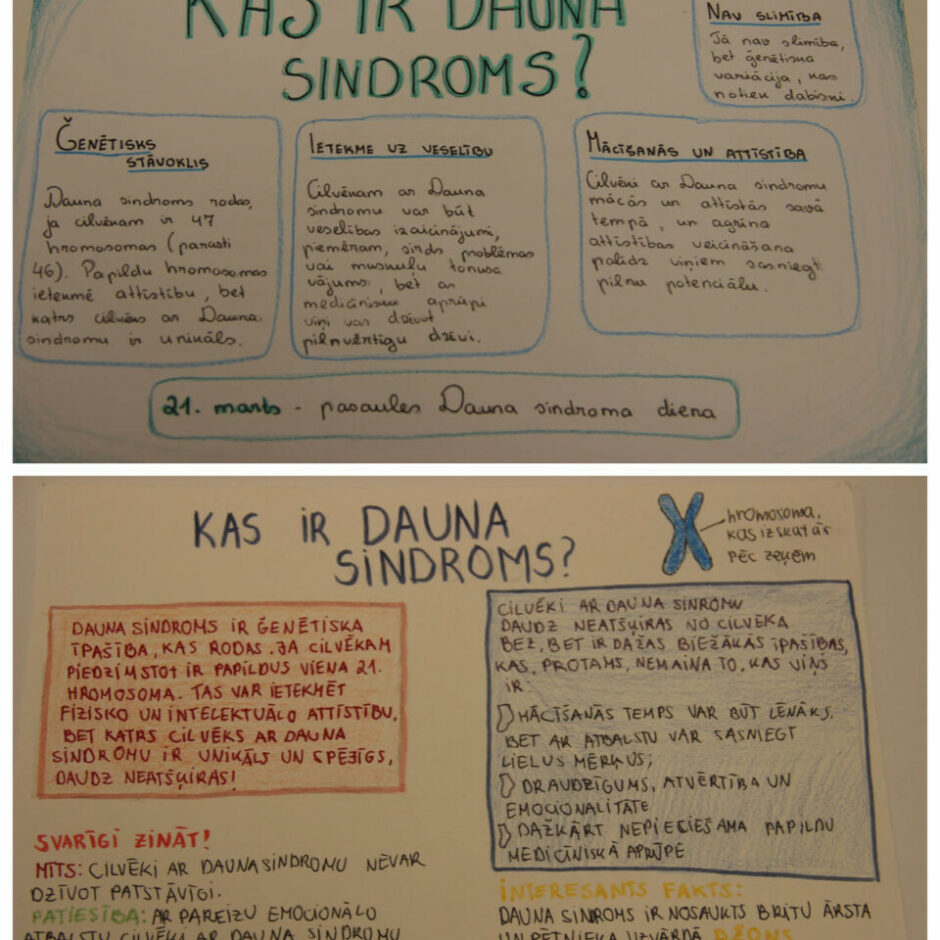 KAS IR DAUNA
SINDROMS?
NAV SLIMĪBA
Tā nav slimība,
bet ģenētiska
variācija, kas
notiek dabiski.
ĢENĒTISKS
STĀVOKLIS
Dauna sindroms rodas,
ja cilvēkam ir 47
hromosomas (parasti
46). Papildu hromosomas
ietekmē attīstību, bet
katrs cilvēks ar Dauna
sindromu ir unikāls.
IETEKME UZ VESELĪBU
Cilvēkam ar Dauna
sindromu var būt
veselības izaicinājumi,
piemēram, sirds problēmas
vai muskuļu tonusa
vājums, bet ar
medicīnisku aprūpi
viņi var dzīvot
pilnvērtīgu dzīvi.
MĀCĪŠANĀS UN ATTĪSTĪBA
Cilvēki ar Dauna sindromu
mācās un attīstās savā
tempā, un agrīna
attīstības veicināšana
palīdz viņiem sasniegt
pilnu potenciālu.
21. marts - pasaules Dauna sindroma diena
KAS IR DAUNA
SINDROMS?
HROMOSOMA,
KAS IZSKATĀS
PĒC ZEĶĒM
DAUNA SINDROMS IR ĢENĒTISKA
ĪPAŠĪBA, KAS RODAS, JA CILVĒKAM
PIEDZIMSTOT IR PAPILDUS VIENA 21.
HROMOSOMA. TAS VAR IETEKMĒT
FIZISKO UN INTELEKTUĀLO ATTĪSTĪBU,
BET KATRS CILVĒKS AR DAUNA
SINDROMU IR UNIKĀLS UN SPĒJĪGS,
DAUDZ NEATŠĶIRAS!
SVARĪGI ZINĀT!
MĪTS: CILVĒKI AR DAUNA SINDROMU NEVAR
DZĪVOT PATSTĀVĪGI.
PATIESĪBA: AR PAREIZU EMOCIONĀLO
ATBALSTU CILVĒKI AR DAUNA SINDROMU
CILVĒKI AR DAUNA SINROMU
DAUDZ NEATŠĶIRAS NO CILVĒKA
BEZ, BET IR DAŽAS BIEŽĀKĀS ĪPAŠĪBAS,
KAS, PROTAMS, NEMAINA TO, KAS VIŅŠ
IR:
MĀCĪŠANĀS TEMPS VAR BŪT LĒNĀKS,
BET AR ATBALSTU VAR SASNIEGT
LIELUS MĒRĶUS;
DRAUDZĪGUMS, ATVĒRTĪBA UN
EMOCIONALITĀTE
DAŽKĀRT NEPIECIEŠAMA PAPILDU
MEDICĪNISKĀ APRŪPE
INTERESANTS FAKTS:
DAUNA SINDROMS IR NOSAUKTS BRITU ĀRSTA
UN PĒTNIEKA UZVĀRDĀ DŽONS